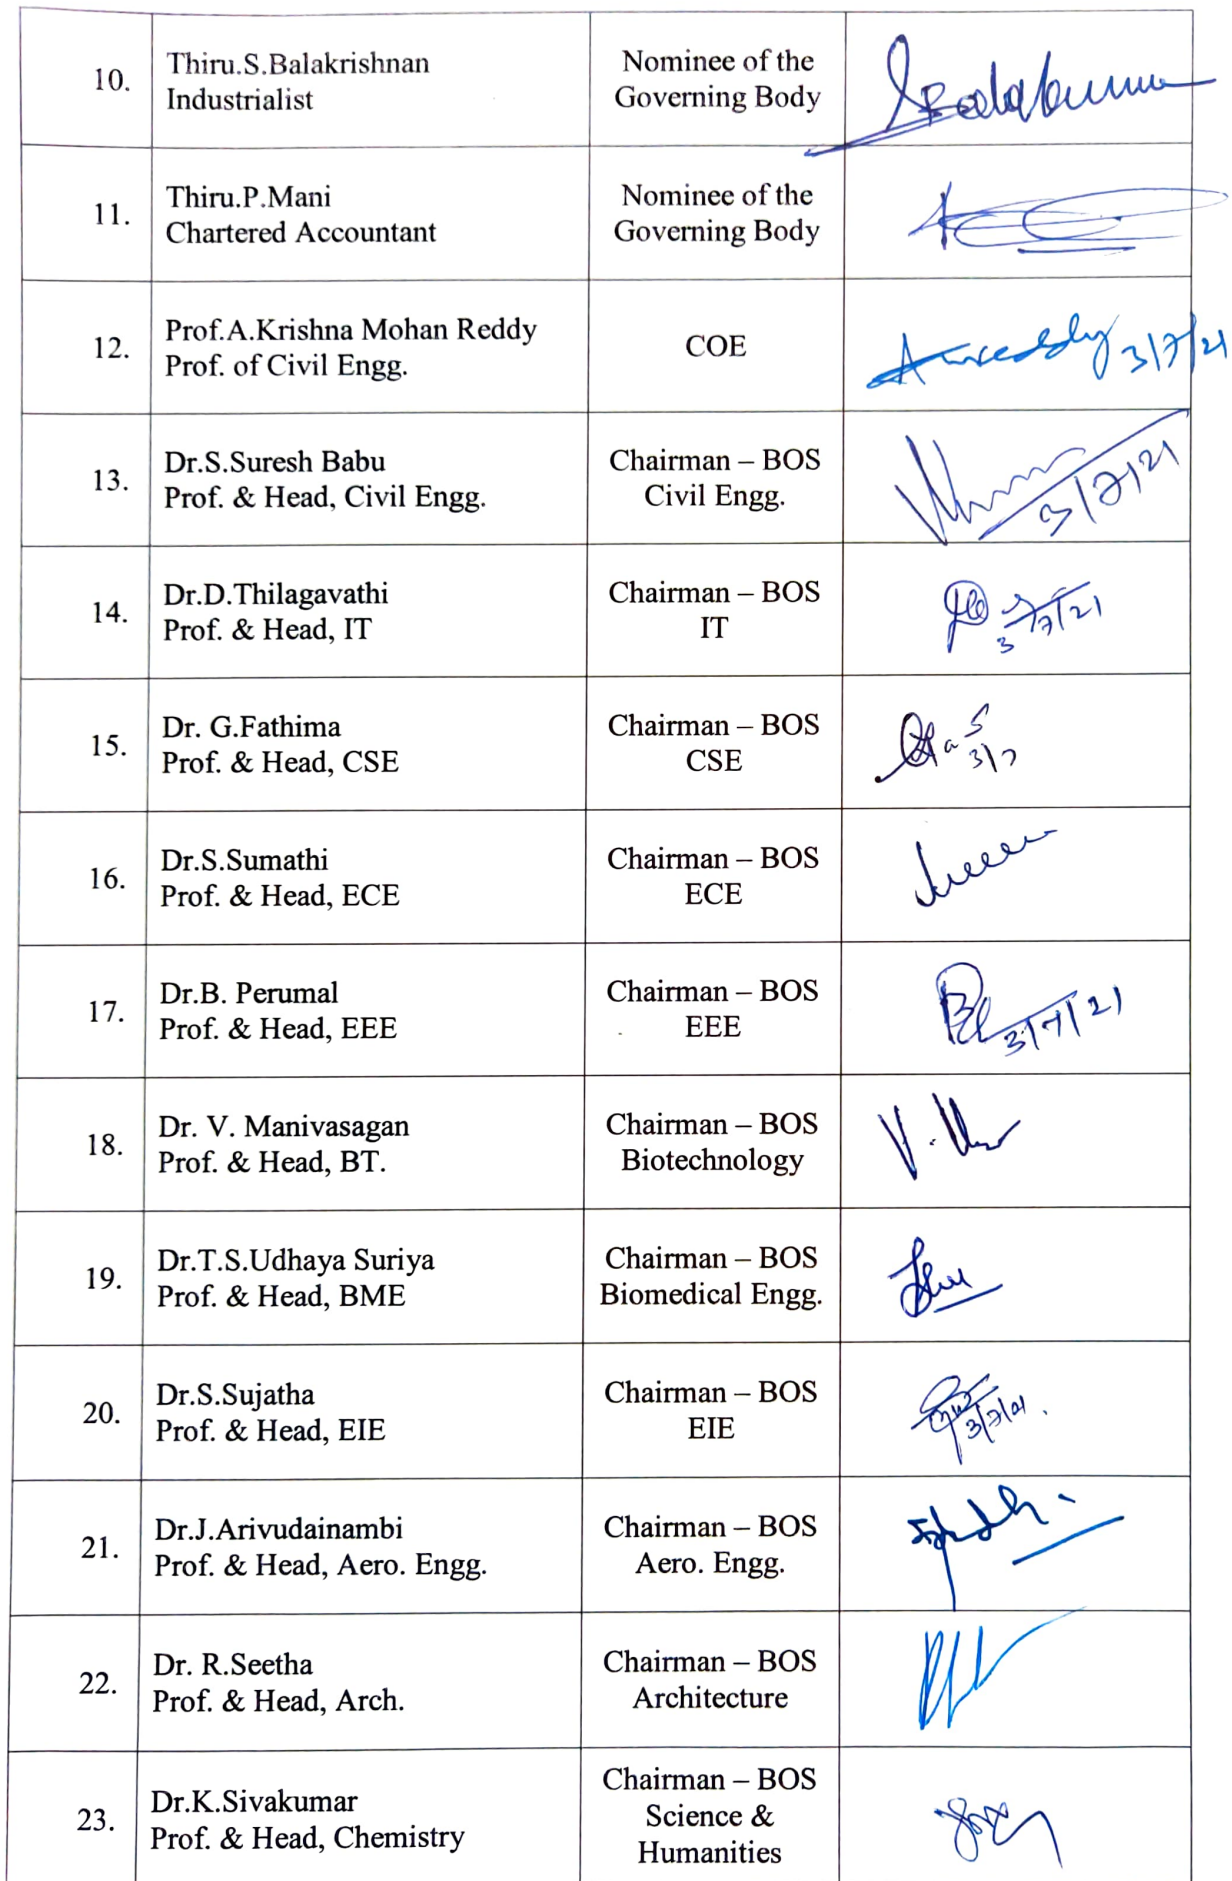 10.
Thiru.S.Balakrishnan
Industrialist
Nominee of the
Governing Body
11.
Thiru.P.Mani
Chartered Accountant
Nominee of the
Governing Body
12.
Prof.A.Krishna Mohan Reddy
Prof. of Civil Engg.
COE
3/7/21
13.
Dr.S.Suresh Babu
Prof. & Head, Civil Engg.
Chairman – BOS
Civil Engg.
3/7/21
14.
Dr.D.Thilagavathi
Prof. & Head, IT
Chairman – BOS
IT
3/7/21
15.
Dr. G.Fathima
Prof. & Head, CSE
Chairman – BOS
CSE
3/7
16.
Dr.S.Sumathi
Prof. & Head, ECE
Chairman – BOS
ECE
17.
Dr.B. Perumal
Prof. & Head, EEE
Chairman – BOS
EEE
3/7/21
18.
Dr. V. Manivasagan
Prof. & Head, BT.
Chairman – BOS
Biotechnology
19.
Dr.T.S.Udhaya Suriya
Prof. & Head, BME
Chairman – BOS
Biomedical Engg.
20.
Dr.S.Sujatha
Prof. & Head, EIE
Chairman – BOS
EIE
3/7/21.
21.
Dr.J.Arivudainambi
Prof. & Head, Aero. Engg.
Chairman – BOS
Aero. Engg.
22.
Dr. R.Seetha
Prof. & Head, Arch.
Chairman – BOS
Architecture
23.
Dr.K.Sivakumar
Prof. & Head, Chemistry
Chairman – BOS
Science &
Humanities